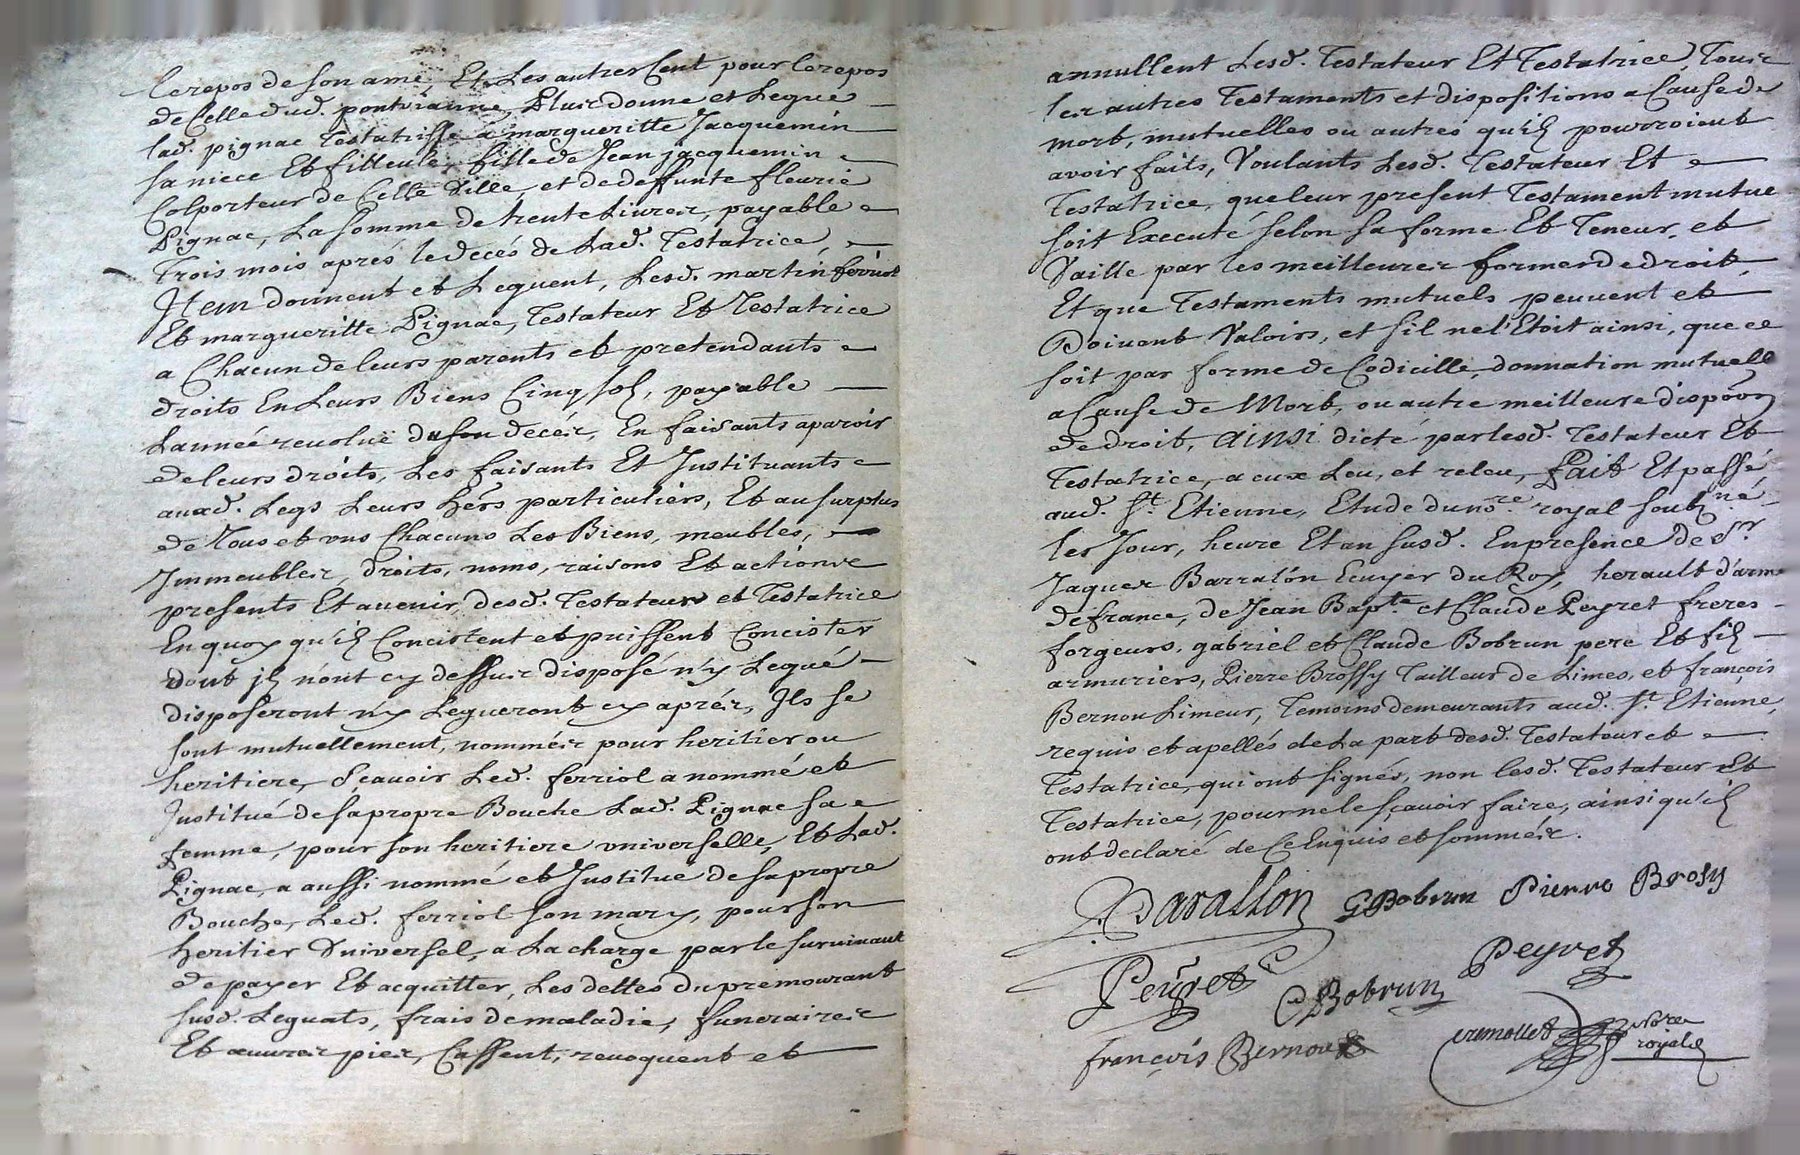 le repos de son ame Et Les autres Cent pour le repos
de Celle dud. pontvianne, Plus donne et Legue
lad. pignac Testatrisse a margueritte Jacquemin
sa niece Et filleule, fille de Jean jacquemin
Colporteur de Cette Ville, et de deffunte fleurie
Pignac, La somme de trente Livres, payable
Trois mois aprés le decés de Lad. Testatrice,
Item donnent et Leguent, Lesd. martin ferriol
Et margueritte Pignac, Testateur Et Testatrice
a Chacun de leurs parents et pretendants
droits En Leurs Biens Cinq sols, payable
Lannée revolue du son decés, En faisants aparoir
de leurs droits, Les faisants Et Instituants
auxd. Legs Leurs hers particuliers, Et au surplus
de Tous et uns Chacuns Les Biens, meubles,
Immeubles, droits, noms, raisons Et actions
presents Et avenir, desd. Testateur et Testatrice
En quoy qu'ils Concistent et puissent Concister
dont ils n'ont cy dessus disposé n'y Legué
disposeront n'y Legueront cy aprés, Ils se
sont mutuellement, nommés pour heritier ou
heritiere, Sçavoir Led. ferriol a nommé et
Institué de sa propre Bouche Lad. Pignac sa
femme, pour son heritiere universelle, Et Lad.
Pignac, a aussi nommé et Institué de sa propre
Bouche, Led. ferriol son mary, pour son
heritier Universel, a La charge par le survivant
de payer Et acquitter, Les dettes du premourant
susd. Leguats, frais de maladie, funeraires
Et œuvres pies, Cassent, revoquent et
annullent Lesd. Testateur Et Testatrice, Tous
les autres Testaments et dispositions a Cause de
mort, mutuelles ou autres qu'ils pourroient
avoir faits, Voulants Lesd. Testateur Et
Testatrice, que leur present Testament mutuel
soit Executé selon sa forme Et Teneur, et
Vaille par les meilleures formes de droit,
Et que Testaments mutuels peuvent et
Doivent Valoirs, et s'il ne l'Etoit ainsi, que ce
soit par forme de Codicille, donnation mutuelle
a Cause de Mort, ou autre meilleure dispoon
de droit, AINSI dicté par lesd. Testateur Et
Testatrice, a eux Leu, et releu, Fait Et passé,
aud. St. Etienne, Etude du nore. royal soubzné
les Jour, heure Et an susd. En presence de Sr
Jaques Barralon Ecuyer du Roy, herault d'arme
de france, de Jean Bapte et Claude Peyret freres
forgeurs, gabriel et Claude Bobrun pere Et fils
armuriers, Pierre Brossy Tailleur de Limes, et françois
Bernou Limeur, Temoins demeurants aud. St. Etienne,
requis et apellés de La part desd. Testateur et
Testatrice, qui ont signés, non lesd. Testateur Et
Testatrice, pour ne le sçavoir faire, ainsi qu'ils
ont declaré de Ce Enquis et sommés.
Barallon G Bobrun Pierre Brosy
Peyret
Peyret C Bobrun
françois Bernou
cremollet Nore
royal